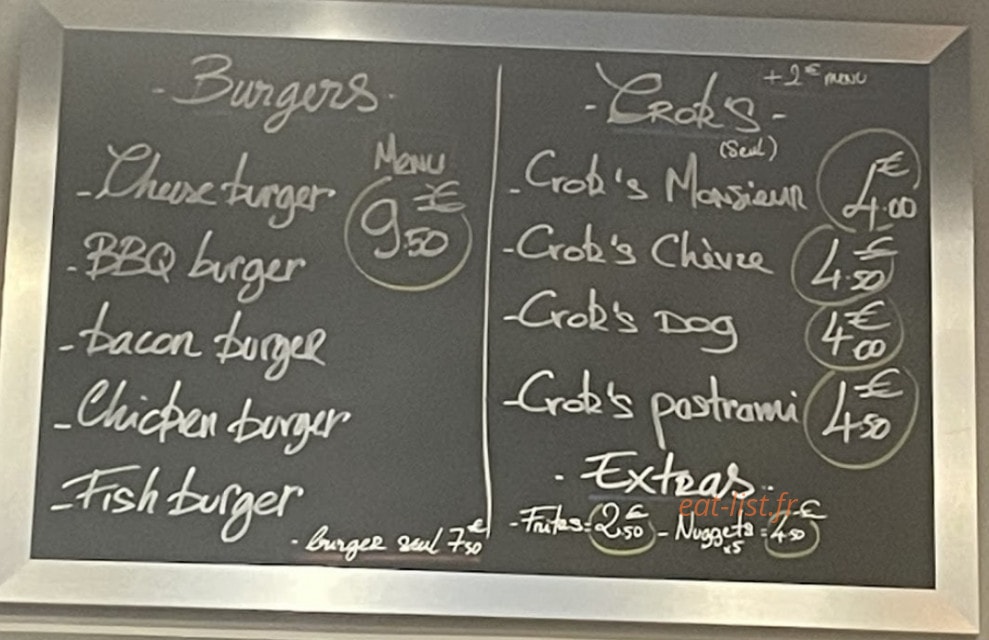 - Burgers -
Menu
- Cheese burger
9€50
- BBQ burger
- bacon burger
- Chicken burger
- Fish burger
- burger seul 7€50
+2€ menu
- Crok's -
(Seul)
- Crok's Monsieur 4€.00
- Crok's Chèvre 4€.50
- Crok's Dog 4€00
- Crok's pastrami 4€.50
- Extras -
eat-list.fr
- Frites = 2€50 - Nuggets = 4€50
x5